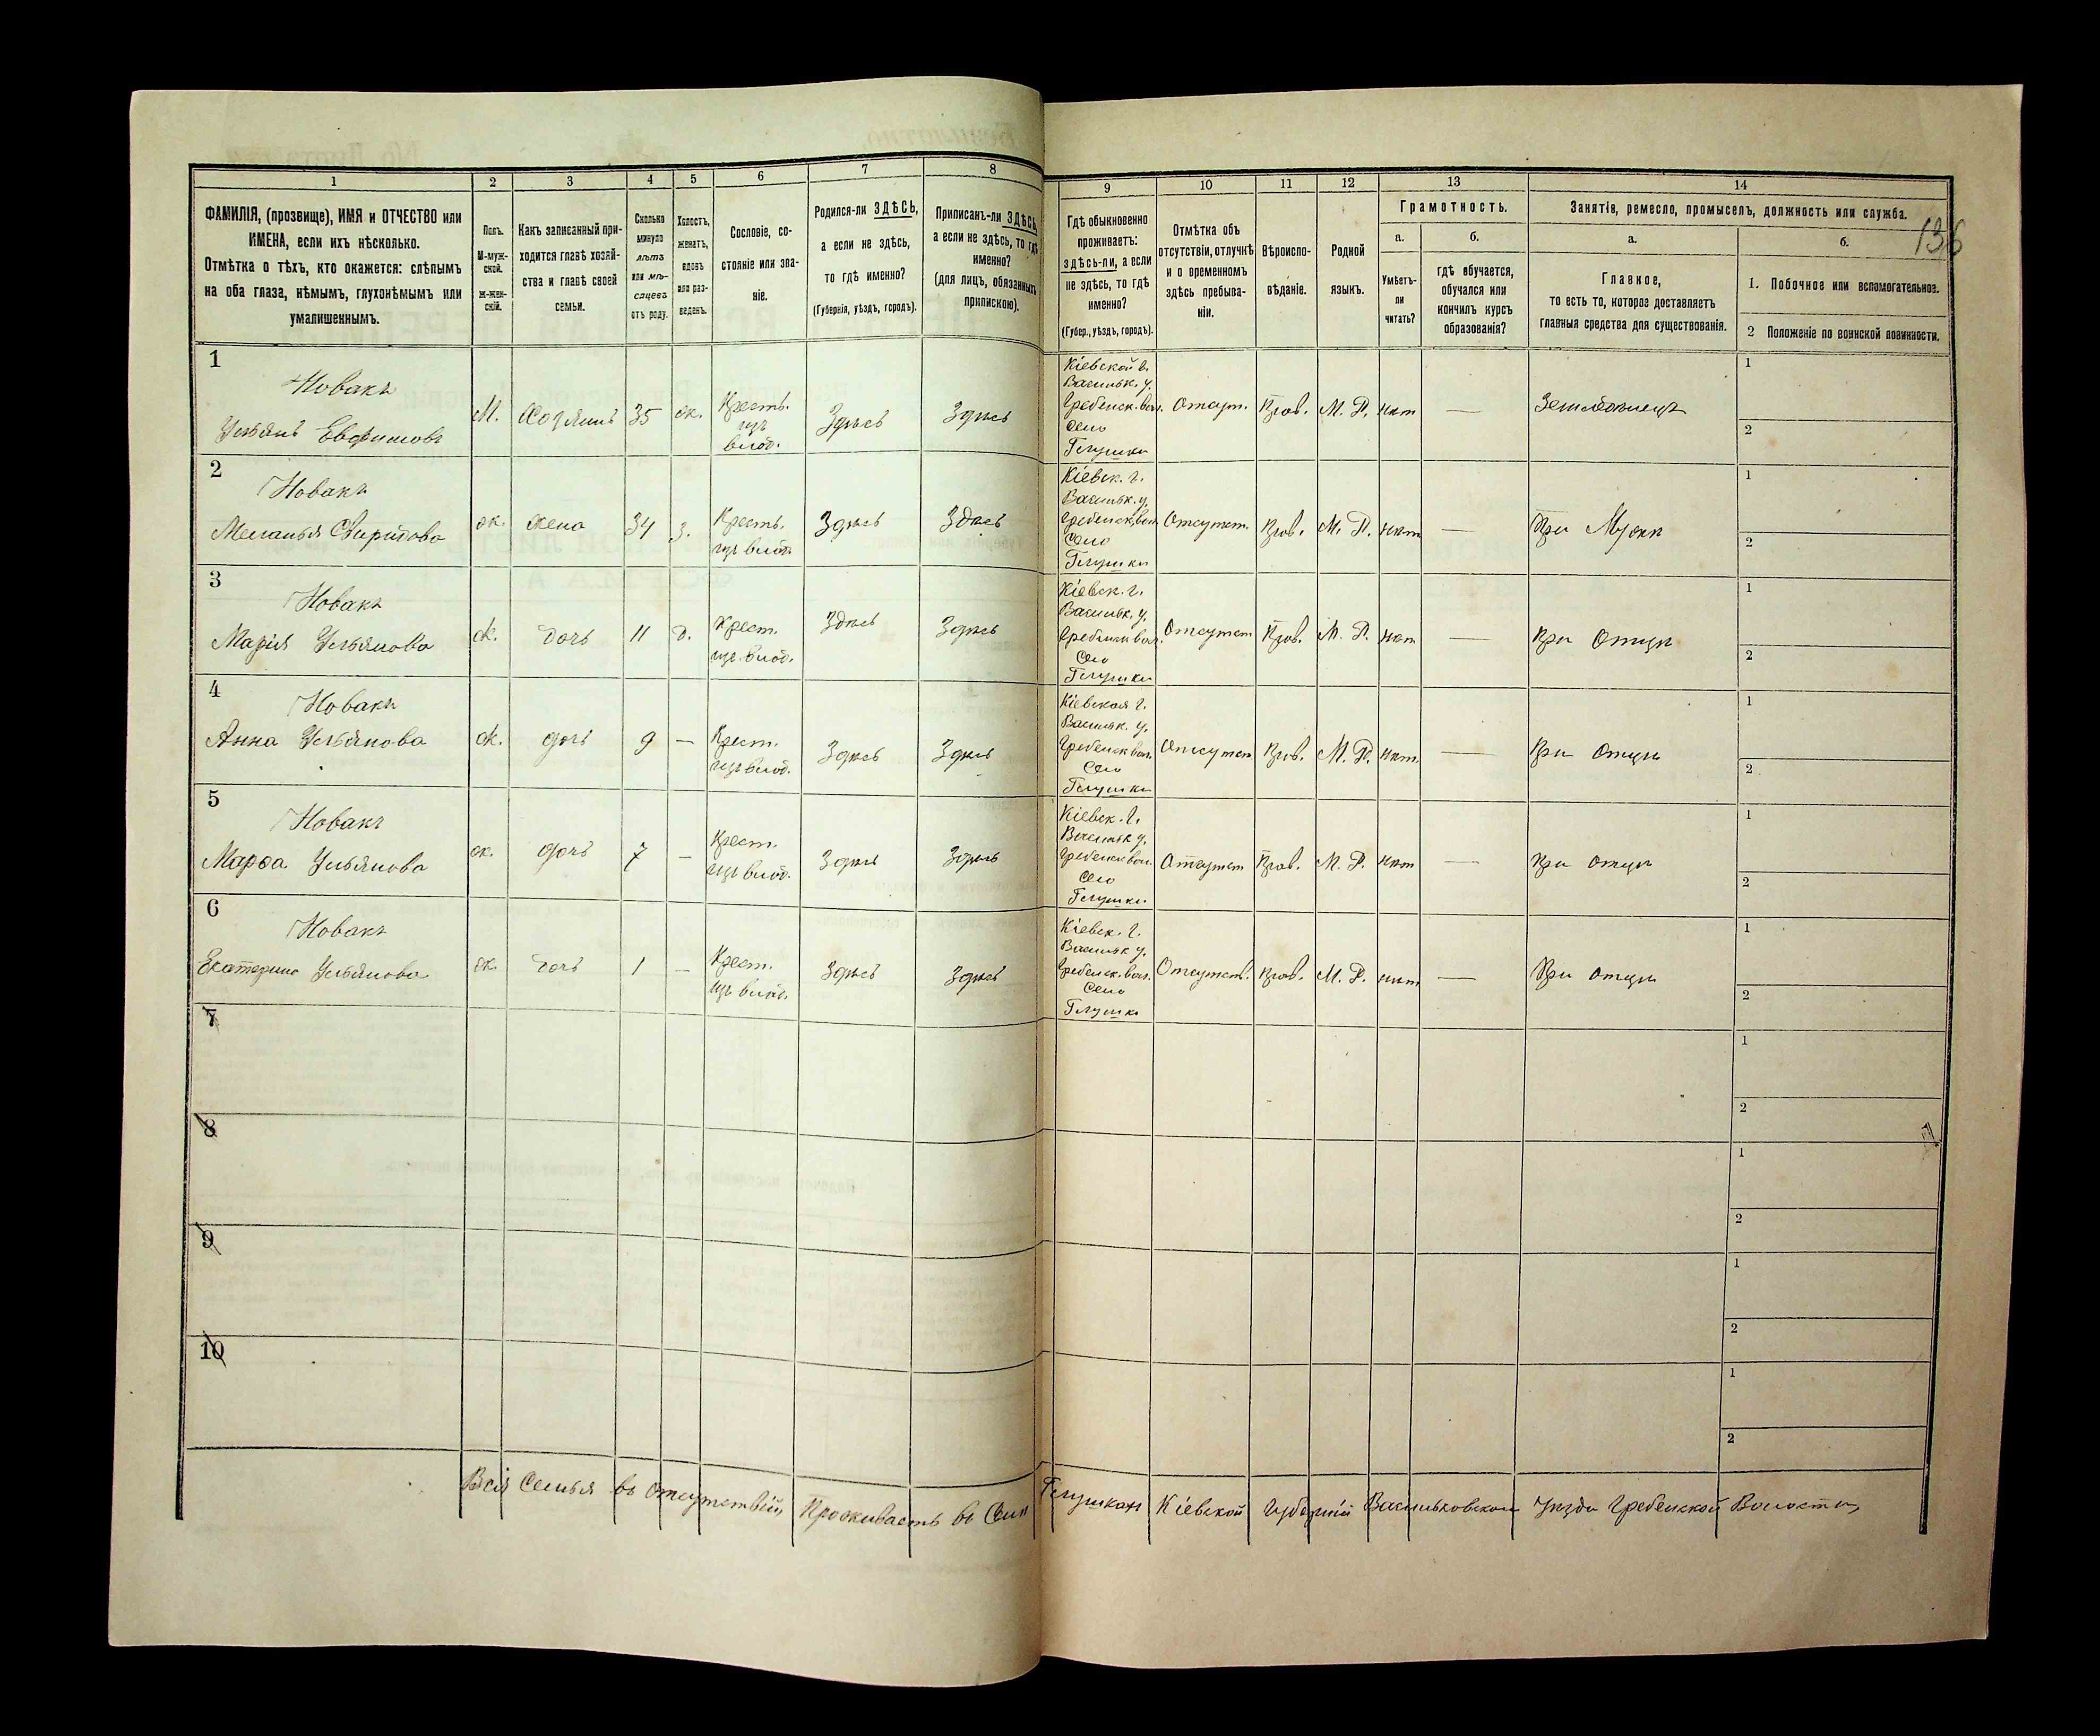 136
1 2 3 4 5 6 7 8 9 10 11 12 13 14
ФАМИЛІЯ, (прозвище), ИМЯ и ОТЧЕСТВО или
ИМЕНА, если ихъ нѣсколько.
Отмѣтка о тѣхъ, кто окажется: слѣпымъ
на оба глаза, нѣмымъ, глухонѣмымъ или
умалишеннымъ.
Полъ.
М-муж-
ской.
Ж-жен-
скій.
Какъ записанный при-
ходится главѣ хозяй-
ства и главѣ своей
семьи.
Сколько
минуло
лѣтъ
или мѣ-
сяцевъ
отъ роду.
Холостъ,
женатъ,
вдовъ
или раз-
веденъ.
Сословіе, со-
стояніе или зва-
ніе.
Родился-ли ЗДѢСЬ,
а если не здѣсь,
то гдѣ именно?
(Губернія, уѣздъ, городъ).
Приписанъ-ли ЗДѢСЬ,
а если не здѣсь, то гдѣ
именно?
(для лицъ, обязанныхъ
припискою).
Гдѣ обыкновенно
проживаетъ:
здѣсь-ли, а если
не здѣсь, то гдѣ
именно?
(Губер., уѣздъ, городъ).
Отмѣтка объ
отсутствіи, отлучкѣ
и о временномъ
здѣсь пребыва-
ніи.
Вѣроиспо-
вѣданіе.
Родной
языкъ.
Грамотность.
а.
Умѣетъ-
ли
читать?
б.
гдѣ обучается,
обучался или
кончилъ курсъ
образованія?
Занятіе, ремесло, промыселъ, должность или служба.
а.
Главное,
то есть то, которое доставляетъ
главныя средства для существованія.
б.
1. Побочное или вспомогательное.
2 Положеніе по воинской повинности.
1
Новакъ
Ульянъ Евфимовъ
М.
Хозяинъ
35
ж.
Кресть.
изъ
влад.
Здѣсь
Здѣсь
Кіевской г.
Васильк. у.
Гребенск. вол.
Село
Глушки
Отсут.
Прав.
М. Р.
нѣт
—
Земледѣлецъ
1
2
2
Новакъ
Меланья Свиридова
ж.
жена
34
з.
Кресть.
изъ влад.
Здѣсь
Здѣсь
Кіевск. г.
Васильк. у.
Гребенск. вол.
Село
Глушки
Отсутст.
Прав.
М. Р.
нѣт
—
При Мужѣ
1
2
3
Новакъ
Марія Ульянова
ж.
дочь
11
д.
Крест.
изъ влад.
Здѣсь
Здѣсь
Кіевск. г.
Васильк. у.
Гребенск вол.
Село
Глушки
Отсутст
Прав.
М. Р.
нѣт
—
При Отцѣ
1
2
4
Новакъ
Анна Ульянова
ж.
дочь
9
—
Крест.
изъ влад.
Здѣсь
Здѣсь
Кіевская г.
Васильк. у.
Гребенск вол.
Село
Глушки
Отсутст
Прав.
М. Р.
нѣт
—
При Отцѣ
1
2
5
Новакъ
Марѳа Ульянова
ж.
дочь
7
—
Крест.
изъ влад.
Здѣсь
Здѣсь
Кіевск. г.
Васильк у.
Гребенск вол.
Село
Глушки
Отсутст
Прав.
М. Р.
нѣт
—
При отцѣ
1
2
6
Новакъ
Екатерина Ульянова
ж.
дочь
1
—
Крест.
изъ влад.
Здѣсь
Здѣсь
Кіевск. г.
Васильк у.
Гребенск. вол.
Село
Глушки
Отсутств.
Прав.
М. Р.
нѣт
—
При отцѣ
1
2
7
1
2
8
1
2
9
1
2
10
1
2
Вся Семья въ отсутствіи, Проживаетъ въ Селѣ Глушкахъ Кіевской Губерніи Васильковскомъ Уѣзда Гребенской Волости,